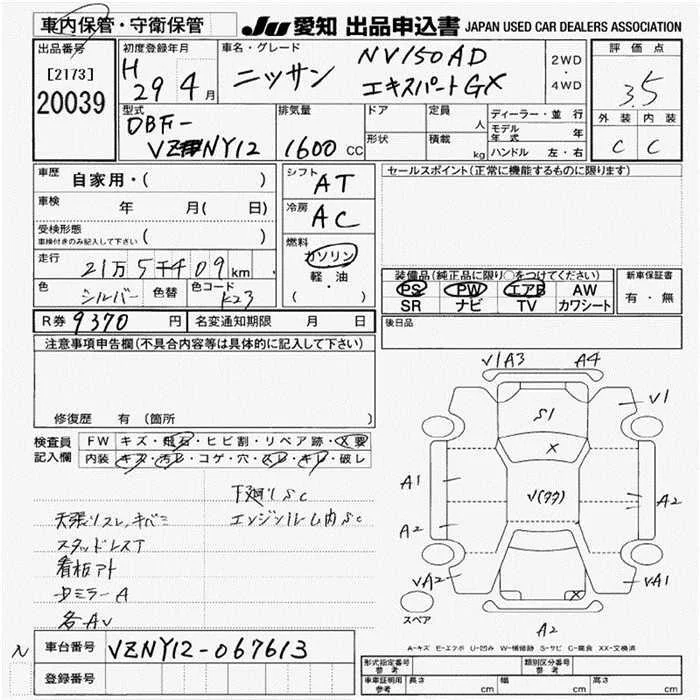 車内保管・守衛保管
JU 愛知 出品申込書 JAPAN USED CAR DEALERS ASSOCIATION
出品番号
[2173]
20039
初度登録年月
H 29 4月
車名・グレード
ニッサン NV150AD
エキスパートGX
2WD
・
4WD
評価点
3.5
外装 内装
C C
型式
DBF-
VZNY12
排気量
1600 CC
ドア
形状
定員
人
積載
kg
ディーラー・並行
モデル年式 年
ハンドル 左・右
車歴
自家用・( )
車検
年 月( 日)
受検形態
車検付きのみ記入して下さい ( )
走行
21万5千409km
色
シルバー
色替
色コード
K23
シフト
AT
冷房
AC
燃料
ガソリン
軽・油
( )
セールスポイント(正常に機能するものに限ります)
装備品(純正品に限り○をつけてください)
PS PW エアB AW
SR ナビ TV カワシート
新車保証書
有・無
R券 9370 円 名変通知期限 月 日
後日品
注意事項申告欄(不具合内容等は具体的に記入して下さい)
修復歴 有 (箇所 )
検査員
記入欄
FW キズ・飛石・ヒビ割・リペア跡・X要
内装 キズ・汚レ・コゲ・穴・スレ・キレ・破レ
下廻りSC
天張りスレ、キバミ エンジンルーム内SC
スタッドレスT
看板アト
ミラーA
各AV
V1A3 A4
S1
V1
X
A1
V(ウラ)
A2
A2
VA2
VA1
X
A2
スペア
N
車台番号 VZNY12-067613
登録番号
A-キズ E-エクボ U-凹み W-補修跡 S-サビ C-腐食 XX-交換済
形式指定番号
参考
類別区分番号
参考
車庫証明用
参考
長さ cm 幅 cm 高さ cm